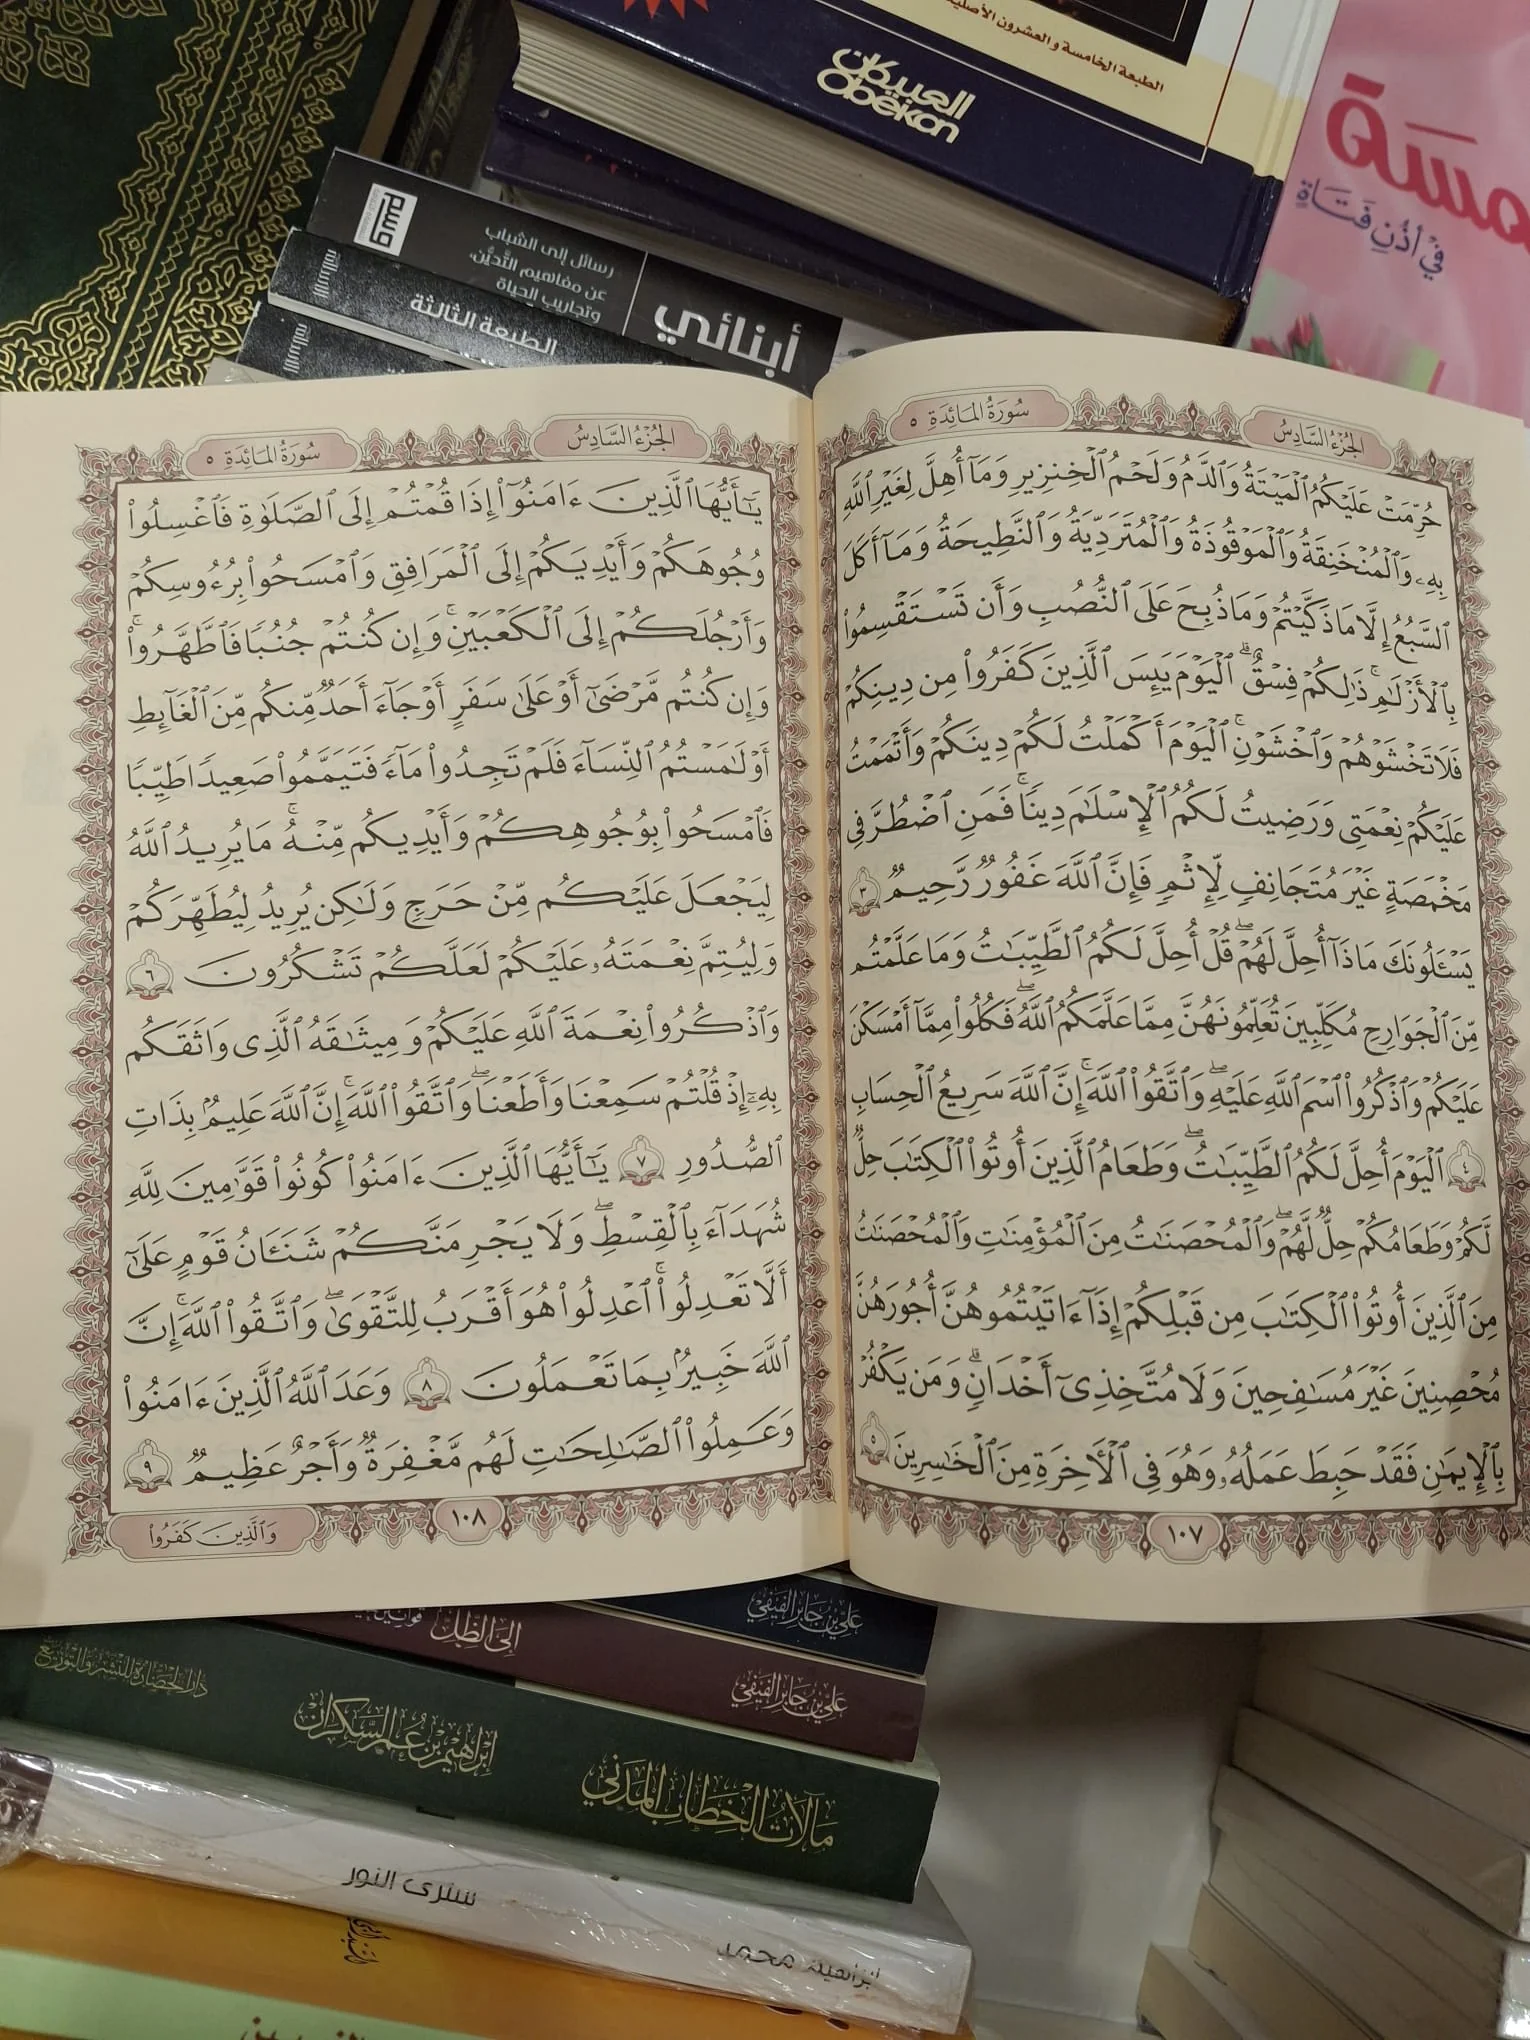 الطبعة الخامسة والعشرون الأصلية
العبيكان
Obekan
همسة
في أذن فتاة
رسائل إلى الشباب
عن مفاهيم التديُّن،
وتجاريب الحياة
أبنائي
الطبعة الثالثة
الجُزْءُ السَّادِسُ
سُورَةُ المَائِدَةِ ٥
حُرِّمَتْ عَلَيْكُمُ ٱلْمَيْتَةُ وَٱلدَّمُ وَلَحْمُ ٱلْخِنزِيرِ وَمَآ أُهِلَّ لِغَيْرِ ٱللَّهِ
بِهِۦ وَٱلْمُنْخَنِقَةُ وَٱلْمَوْقُوذَةُ وَٱلْمُتَرَدِّيَةُ وَٱلنَّطِيحَةُ وَمَآ أَكَلَ
ٱلسَّبُعُ إِلَّا مَا ذَكَّيْتُمْ وَمَا ذُبِحَ عَلَى ٱلنُّصُبِ وَأَن تَسْتَقْسِمُوا۟
بِٱلْأَزْلَٰمِ ۚ ذَٰلِكُمْ فِسْقٌ ۗ ٱلْيَوْمَ يَئِسَ ٱلَّذِينَ كَفَرُوا۟ مِن دِينِكُمْ
فَلَا تَخْشَوْهُمْ وَٱخْشَوْنِ ۚ ٱلْيَوْمَ أَكْمَلْتُ لَكُمْ دِينَكُمْ وَأَتْمَمْتُ
عَلَيْكُمْ نِعْمَتِى وَرَضِيتُ لَكُمُ ٱلْإِسْلَٰمَ دِينًا ۚ فَمَنِ ٱضْطُرَّ فِى
مَخْمَصَةٍ غَيْرَ مُتَجَانِفٍ لِّإِثْمٍ فَإِنَّ ٱللَّهَ غَفُورٌ رَّحِيمٌ ٣
يَسْـَٔلُونَكَ مَاذَآ أُحِلَّ لَهُمْ ۖ قُلْ أُحِلَّ لَكُمُ ٱلطَّيِّبَٰتُ وَمَا عَلَّمْتُم
مِّنَ ٱلْجَوَارِحِ مُكَلِّبِينَ تُعَلِّمُونَهُنَّ مِمَّا عَلَّمَكُمُ ٱللَّهُ ۖ فَكُلُوا۟ مِمَّآ أَمْسَكْنَ
عَلَيْكُمْ وَٱذْكُرُوا۟ ٱسْمَ ٱللَّهِ عَلَيْهِ ۖ وَٱتَّقُوا۟ ٱللَّهَ ۚ إِنَّ ٱللَّهَ سَرِيعُ ٱلْحِسَابِ
٤ ٱلْيَوْمَ أُحِلَّ لَكُمُ ٱلطَّيِّبَٰتُ ۖ وَطَعَامُ ٱلَّذِينَ أُوتُوا۟ ٱلْكِتَٰبَ حِلٌّ
لَّكُمْ وَطَعَامُكُمْ حِلٌّ لَّهُمْ ۖ وَٱلْمُحْصَنَٰتُ مِنَ ٱلْمُؤْمِنَٰتِ وَٱلْمُحْصَنَٰتُ
مِنَ ٱلَّذِينَ أُوتُوا۟ ٱلْكِتَٰبَ مِن قَبْلِكُمْ إِذَآ ءَاتَيْتُمُوهُنَّ أُجُورَهُنَّ
مُحْصِنِينَ غَيْرَ مُسَٰفِحِينَ وَلَا مُتَّخِذِىٓ أَخْدَانٍ ۗ وَمَن يَكْفُرْ
بِٱلْإِيمَٰنِ فَقَدْ حَبِطَ عَمَلُهُۥ وَهُوَ فِى ٱلْـَٔاخِرَةِ مِنَ ٱلْخَٰسِرِينَ ٥
١٠٧
الجُزْءُ السَّادِسُ
سُورَةُ المَائِدَةِ ٥
يَٰٓأَيُّهَا ٱلَّذِينَ ءَامَنُوٓا۟ إِذَا قُمْتُمْ إِلَى ٱلصَّلَوٰةِ فَٱغْسِلُوا۟
وُجُوهَكُمْ وَأَيْدِيَكُمْ إِلَى ٱلْمَرَافِقِ وَٱمْسَحُوا۟ بِرُءُوسِكُمْ
وَأَرْجُلَكُمْ إِلَى ٱلْكَعْبَيْنِ ۚ وَإِن كُنتُمْ جُنُبًا فَٱطَّهَّرُوا۟ ۚ
وَإِن كُنتُم مَّرْضَىٰٓ أَوْ عَلَىٰ سَفَرٍ أَوْ جَآءَ أَحَدٌ مِّنكُم مِّنَ ٱلْغَآئِطِ
أَوْ لَٰمَسْتُمُ ٱلنِّسَآءَ فَلَمْ تَجِدُوا۟ مَآءً فَتَيَمَّمُوا۟ صَعِيدًا طَيِّبًا
فَٱمْسَحُوا۟ بِوُجُوهِكُمْ وَأَيْدِيكُم مِّنْهُ ۚ مَا يُرِيدُ ٱللَّهُ
لِيَجْعَلَ عَلَيْكُم مِّنْ حَرَجٍ وَلَٰكِن يُرِيدُ لِيُطَهِّرَكُمْ
وَلِيُتِمَّ نِعْمَتَهُۥ عَلَيْكُمْ لَعَلَّكُمْ تَشْكُرُونَ ٦
وَٱذْكُرُوا۟ نِعْمَةَ ٱللَّهِ عَلَيْكُمْ وَمِيثَٰقَهُ ٱلَّذِى وَاثَقَكُم
بِهِۦٓ إِذْ قُلْتُمْ سَمِعْنَا وَأَطَعْنَا ۖ وَٱتَّقُوا۟ ٱللَّهَ ۚ إِنَّ ٱللَّهَ عَلِيمٌۢ بِذَاتِ
ٱلصُّدُورِ ٧ يَٰٓأَيُّهَا ٱلَّذِينَ ءَامَنُوا۟ كُونُوا۟ قَوَّٰمِينَ لِلَّهِ
شُهَدَآءَ بِٱلْقِسْطِ ۖ وَلَا يَجْرِمَنَّكُمْ شَنَـَٔانُ قَوْمٍ عَلَىٰٓ
أَلَّا تَعْدِلُوا۟ ۚ ٱعْدِلُوا۟ هُوَ أَقْرَبُ لِلتَّقْوَىٰ ۖ وَٱتَّقُوا۟ ٱللَّهَ ۚ إِنَّ
ٱللَّهَ خَبِيرٌۢ بِمَا تَعْمَلُونَ ٨ وَعَدَ ٱللَّهُ ٱلَّذِينَ ءَامَنُوا۟
وَعَمِلُوا۟ ٱلصَّٰلِحَٰتِ لَهُم مَّغْفِرَةٌ وَأَجْرٌ عَظِيمٌ ٩
١٠٨
وَٱلَّذِينَ كَفَرُوا۟
علي بن جابر الفيفي
إلى الظل
علي بن جابر الفيفي
مآلات الخطاب المدني
إبراهيم بن عمر السكران
دار الحضارة للنشر والتوزيع
سترى النور